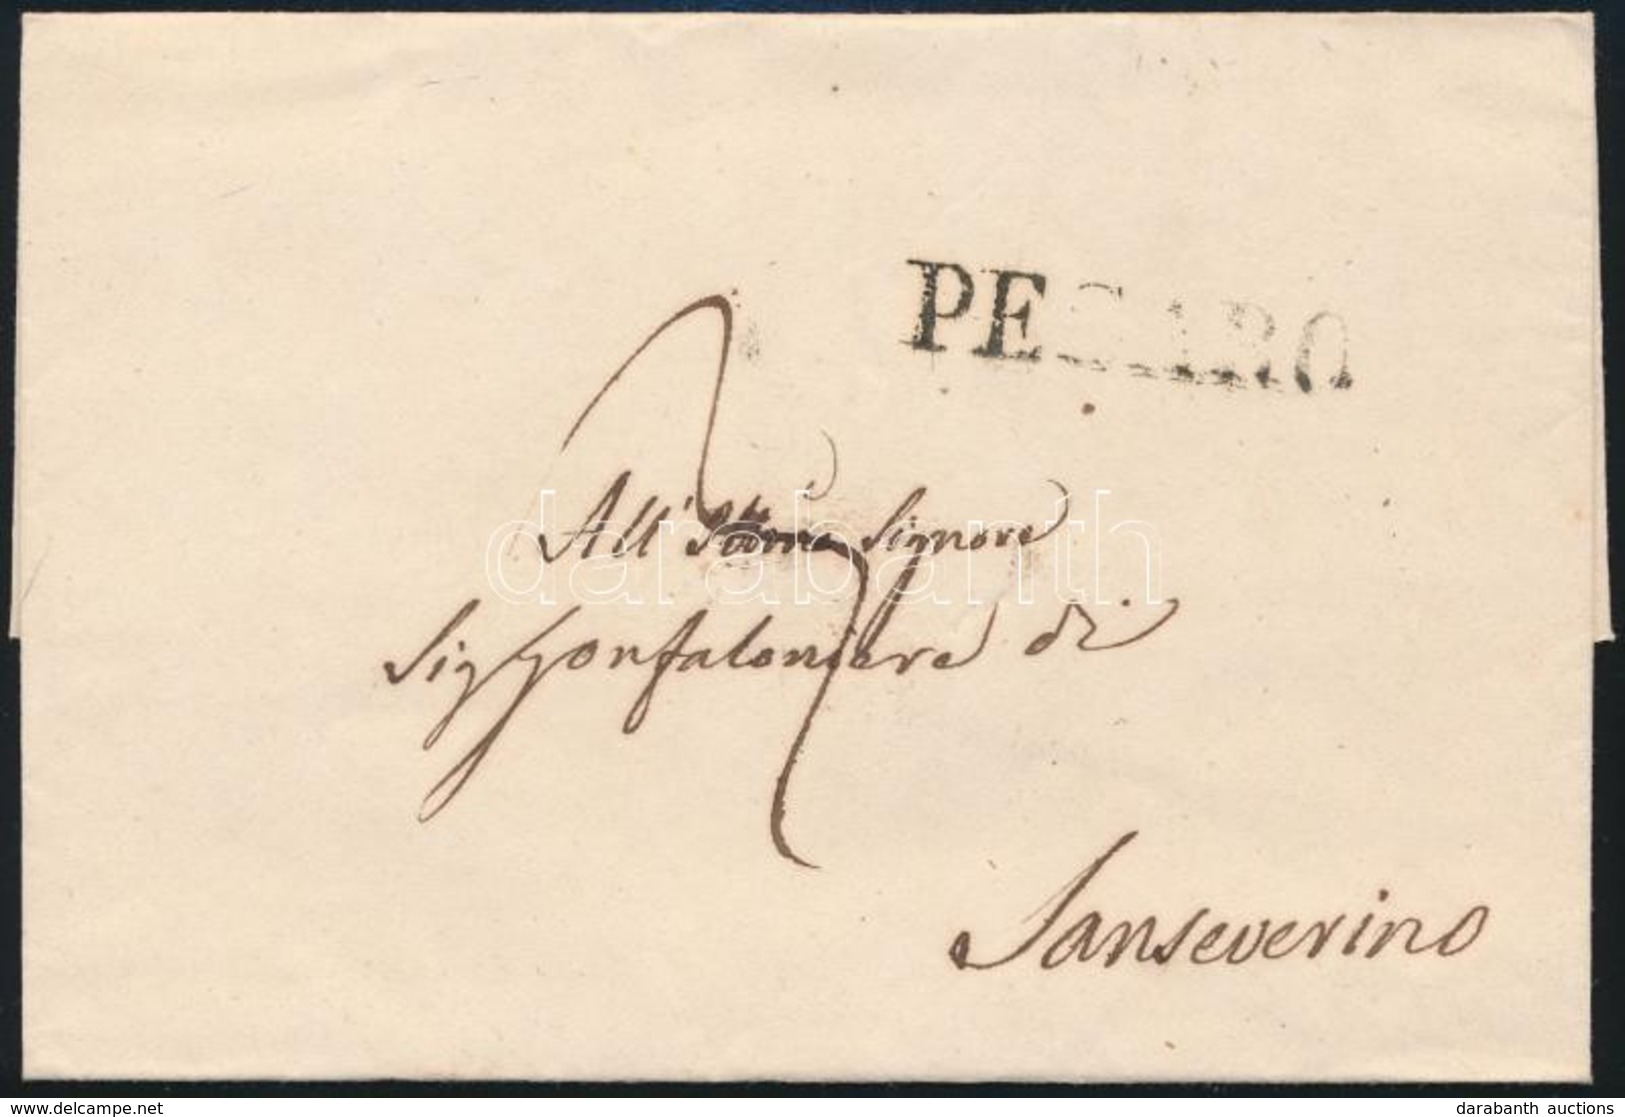 PESARO
All' Ittmo Signore
Sig Gonfaloniere di
Sanseverino
darabanth
delcampe.net
darabanth auctions